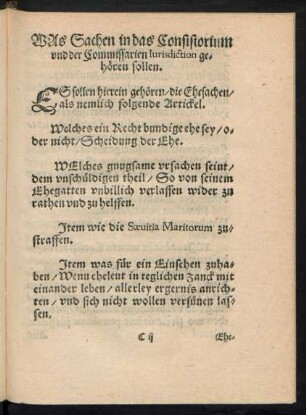 WAs Sachen in das Consistorium
vnd der Commissarien Iurisdiction ge-
hören sollen.
ES sollen hierein gehören / die Ehesachen /
als nemlich folgende Artickel.
Welches ein Recht bundige ehe sey / o-
der nicht / Scheidung der Ehe.
WElches gnugsame vrsachen seint /
dem vnschüldigen theil / So von seinem
Ehegatten vnbillich verlassen wider zu
rathen vnd zu helffen.
Item wie die Sæuitia Maritorum zu-
straffen.
Item was für ein Einsehen zuha-
ben / Wenn eheleut in teglichen Zanck mit
einander leben / allerley ergernis anrich-
ten / vnd sich nicht wollen versünen las-
sen.
C ij
Ehe-